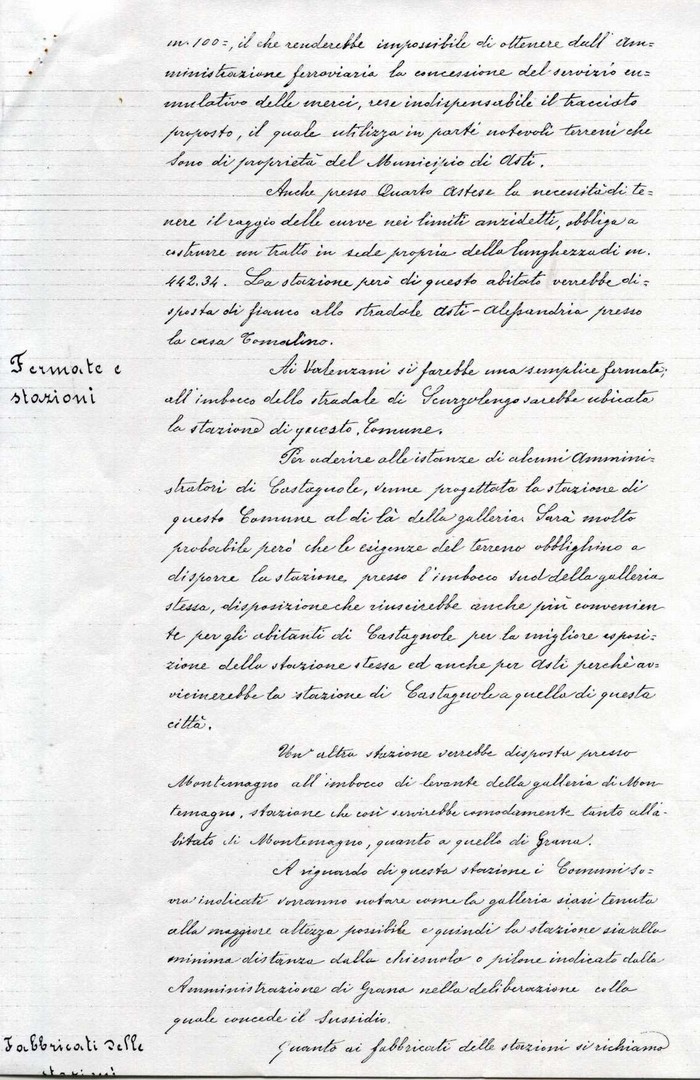 m. 100=, il che renderebbe impossibile di ottenere dall' Am=
ministrazione ferroviaria la concessione del servizio cu=
mulativo delle merci, rese indispensabile il tracciato
proposto, il quale utilizza in parte notevoli terreni che
sono di proprietà del Municipio di Asti.
Anche presso Quarto Astese la necessità di te=
nere il raggio delle curve nei limiti anzidetti, obbliga a
costrurre un tratto in sede propria della lunghezza di m.
442.34. La stazione però di questo abitato verrebbe di=
sposta di fianco allo stradale Asti-Alessandria presso
la casa Tomalino.
Fermate e
stazioni
Ai Valenzani si farebbe una semplice fermata;
all'imbocco dello stradale di Scurzolengo sarebbe ubicata
la stazione di questo Comune.
Per aderire alle istanze di alcuni Ammini=
stratori di Castagnole, venne progettata la stazione di
questo Comune al di là della galleria. Sarà molto
probabile però che le esigenze del terreno obblighino a
disporre la stazione presso l'imbocco sud della galleria
stessa, disposizione che riuscirebbe anche più convenien
te per gli abitanti di Castagnole per la migliore esposi=
zione della stazione stessa ed anche per Asti perchè av=
vicinerebbe la stazione di Castagnole a quella di questa
città.
Un'altra stazione verrebbe disposta presso
Montemagno all'imbocco di levante della galleria di Mon
temagno, stazione che così servirebbe comodamente tanto all'a=
bitato di Montemagno, quanto a quello di Grana.
A riguardo di questa stazione i Comuni so=
vra indicati vorranno notare come la galleria siasi tenuta
alla maggiore altezza possibile e quindi la stazione sia alla
minima distanza dalla chiesuola o pilone indicato dalla
Amministrazione di Grana nella deliberazione colla
quale concede il sussidio.
Fabbricati delle
stazioni
Quanto ai fabbricati delle stazioni si richiama